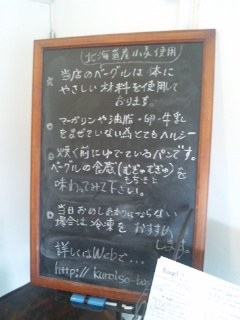 (北海道産小麦使用)
☆ 当店のベーグルは体に
やさしい材料を使用して
おります。
マーガリンや油脂・卵・牛乳
をまぜていない為とてもヘルシー
◎ 焼く前にゆでているパンです。
ベーグルの食感(むぎゅむぎゅ)を
もちもち
味わってみて下さい。
当日おめしあがりにならない
場合は冷凍をおすすめ
します。
詳しくはWebで...
http://kuroiso-ba